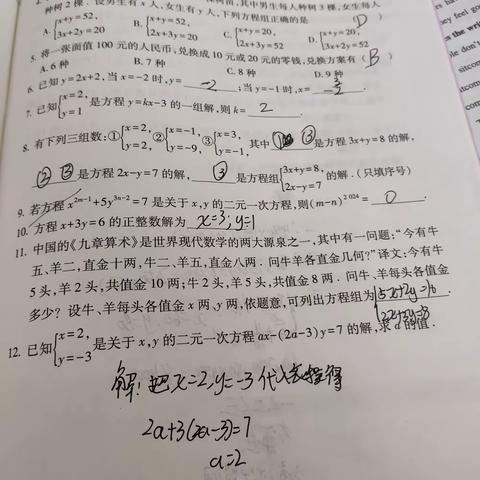 种树2棵．设男生有x人，女生有y人，下列方程组正确的是 D ）
A. {x+y=52, 3x+2y=20 B. {x+y=52, 2x+3y=20 C. {x+y=20, 2x+3y=52 D. {x+y=20, 3x+2y=52
5. 将一张面值100元的人民币，兑换成10元或20元的零钱，兑换方案有（ B ）
A. 6种 B. 7种 C. 8种 D. 9种
6. 已知y=2x+2，当x=-2时，y= -2 ；当y=-1时，x=
7. 已知{x=2, y=1 是方程y=kx-3的一组解，则k= 2 ．
8. 有下列三组数：①{x=2, y=2, ②{x=-1, y=-9, ③{x=3, y=-1, 其中 ③ 是方程3x+y=8的解，
② ③ 是方程2x-y=7的解， ③ 是方程组{3x+y=8, 2x-y=7 的解．(只填序号)
9. 若方程x^{2m-1}+5y^{3n-2}=7是关于x，y的二元一次方程，则(m-n)^{2024}= 0 ．
10. 方程x+3y=6的正整数解为 x=3; y=1
11. 中国的《九章算术》是世界现代数学的两大源泉之一，其中有一问题：“今有牛
五、羊二，直金十两，牛二、羊五，直金八两．问牛羊各直金几何？”译文：今有牛
5头，羊2头，共值金10两；牛2头，羊5头，共值金8两．问牛、羊每头各值金
多少？设牛、羊每头各值金x两、y两，依题意，可列出方程组为 {5x+2y=10 2x+5y=8 ．
12. 已知{x=2, y=-3 是关于x，y的二元一次方程ax-(2a-3)y=7的解，求a的值．
解：把x=2,y=-3代入方程得
2a+3(2a-3)=7
a=2